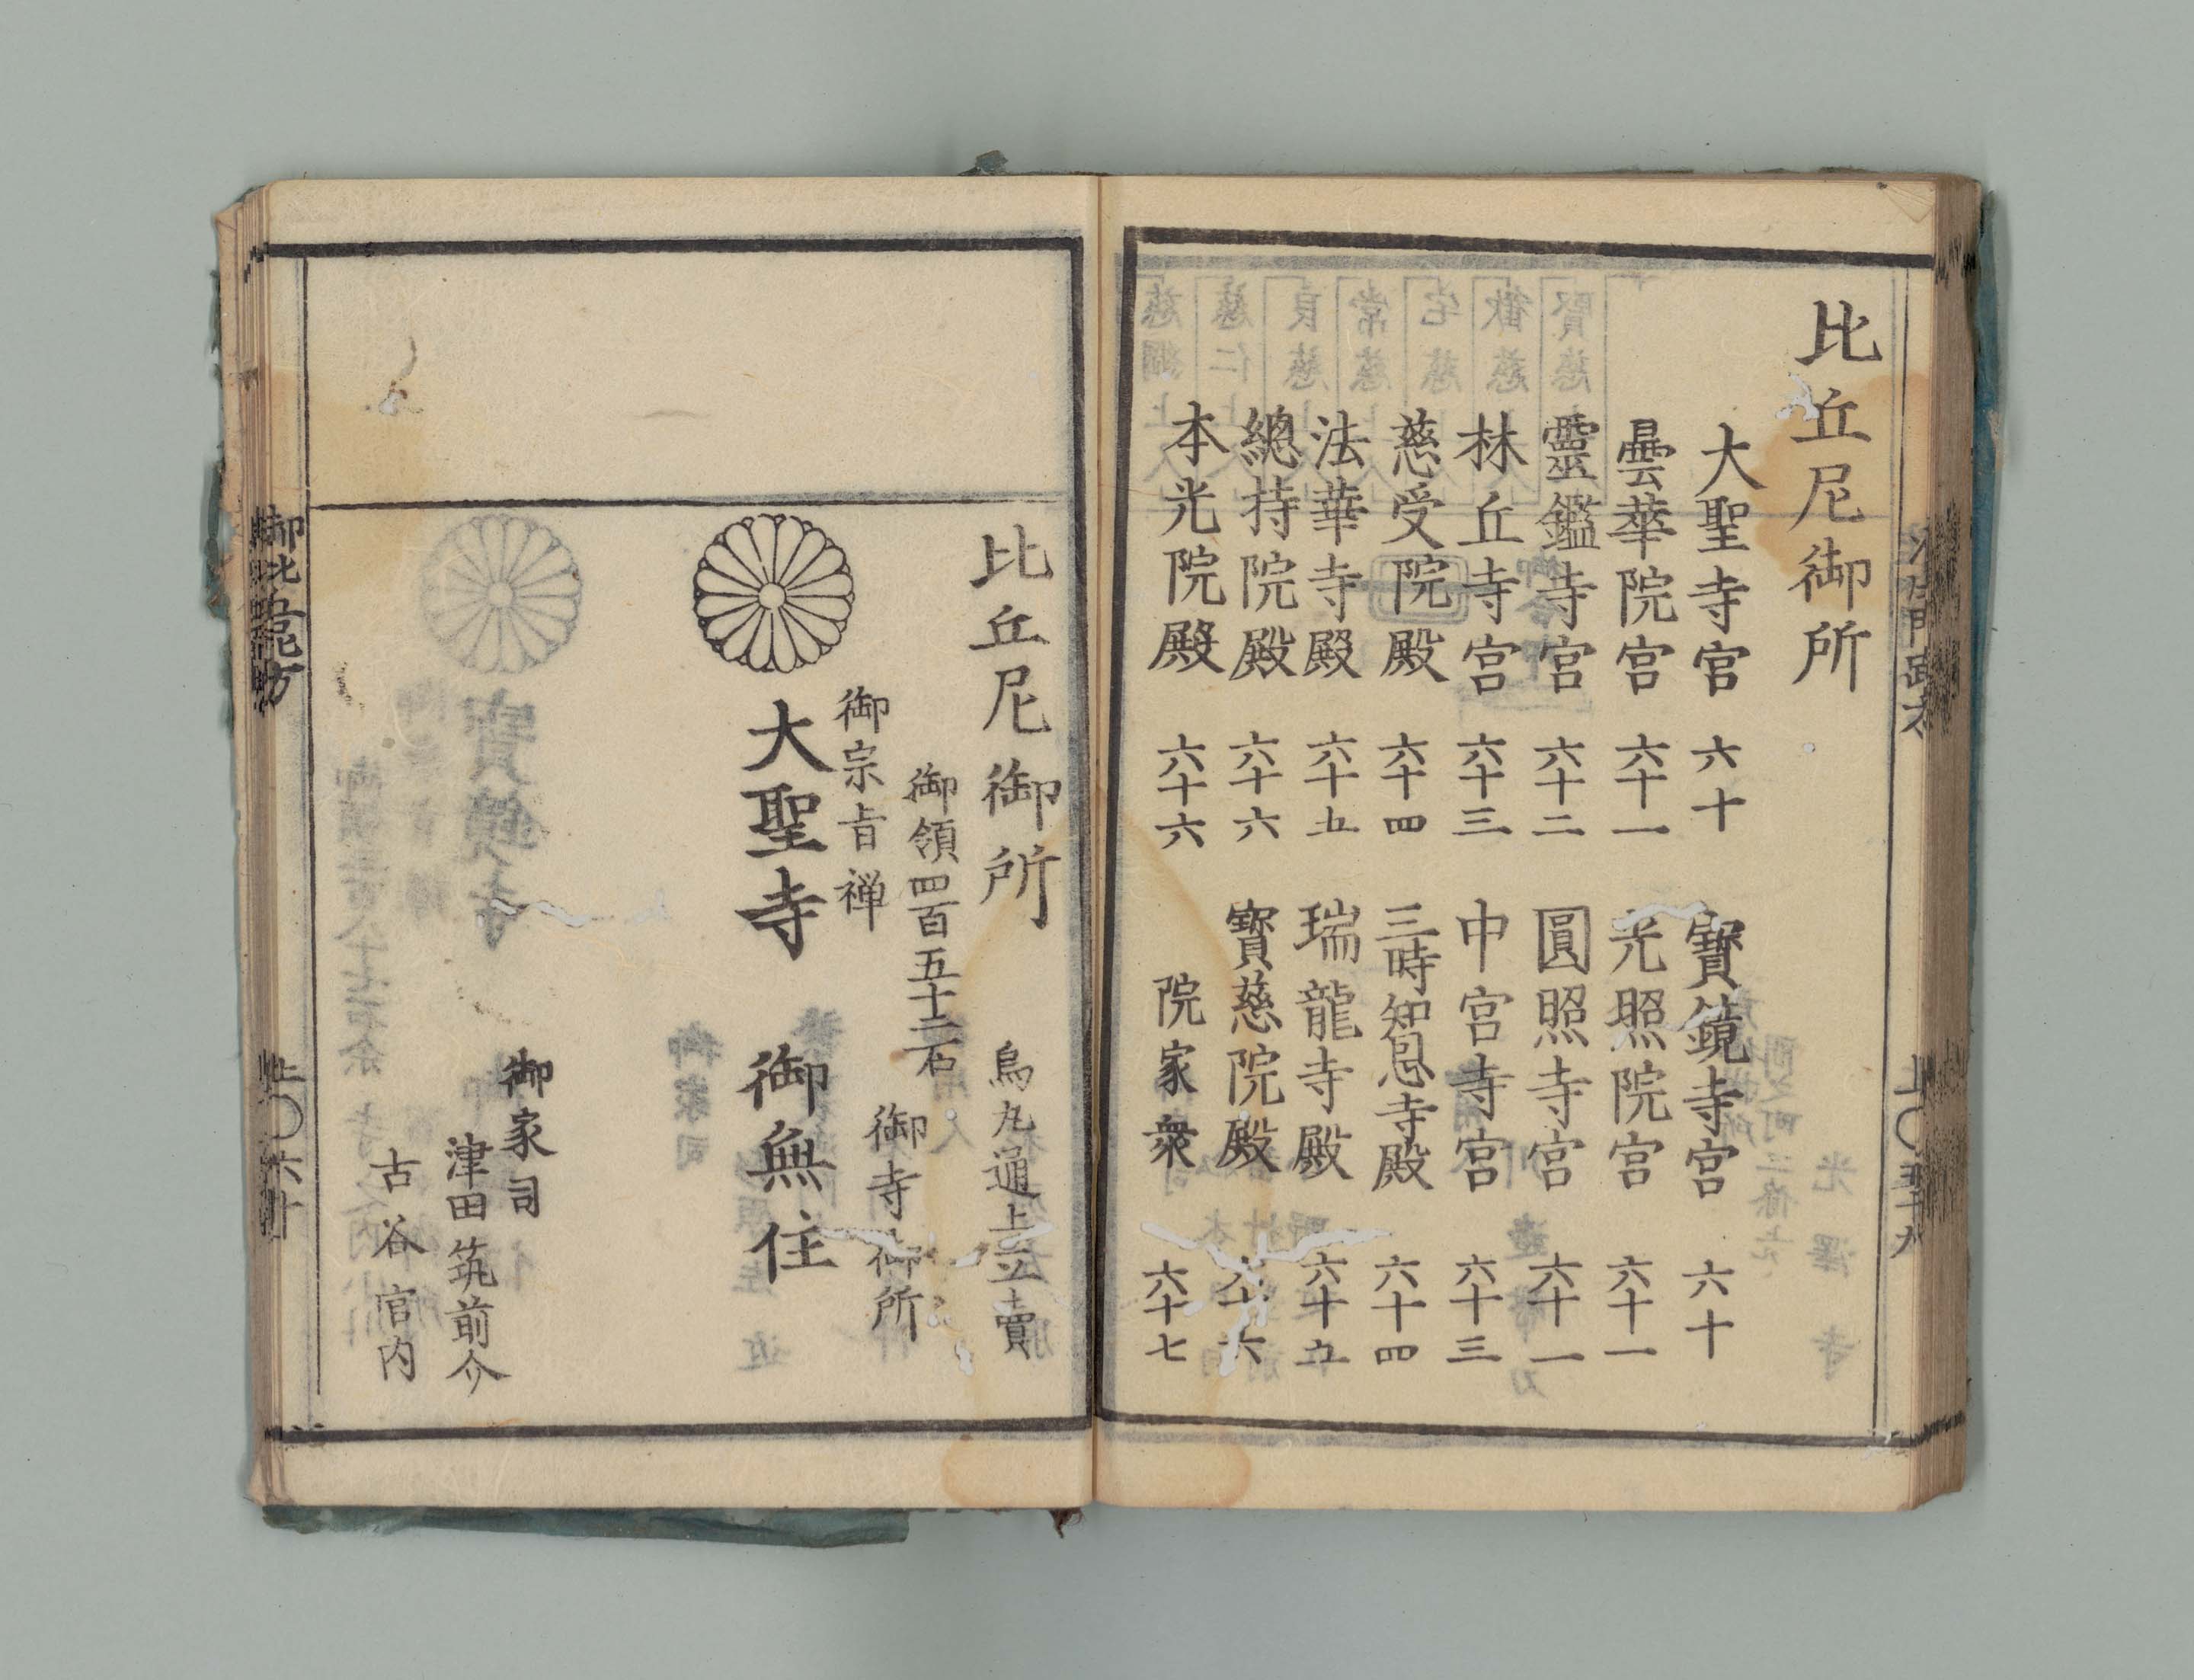 比丘尼御所
大聖寺宮 六十 寳鏡寺宮 六十
曇華院宮 六十一 光照院宮 六十一
靈鑑寺宮 六十二 圓照寺宮 六十一
林丘寺宮 六十三 中宮寺宮 六十三
慈受院殿 六十四 三時知恩寺殿 六十四
法華寺殿 六十五 瑞龍寺殿 六十五
總持院殿 六十六 寳慈院殿 六十六
本光院殿 六十六 院家衆 六十七
比丘尼御所 烏丸通上立賣
御領四百五十二石 御寺御所
御宗旨禅
大聖寺 御無住
御家司
津田筑前介
古谷宮内
上〇六十